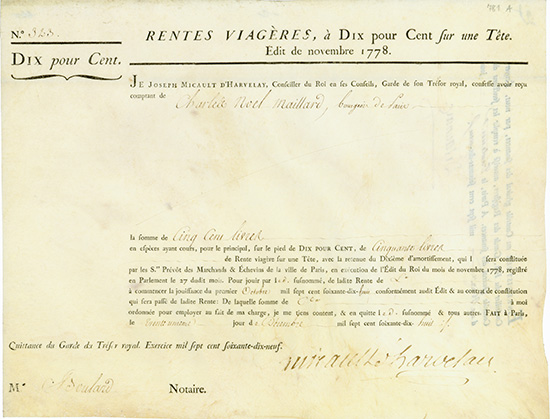 783 A
N.º 323.
RENTES VIAGÈRES, à DIX pour CENT sur une Tête.
Edit de novembre 1778.
DIX pour CENT.
JE JOSEPH MICAULT D'HARVELAY, Conseiller du Roi en ses Conseils, Garde de son Trésor royal, confesse avoir reçu
comptant de Charles Noel Maillard, bourgeois de Paris
la somme de Cinq Cent livres
en espèces ayant cours, pour le principal, sur le pied de DIX POUR CENT, de Cinquante livres
de Rente viagère sur une Tête, avec la retenue du Dixième d'amortissement, qui l sera constituée
par les S.rs Prévôt des Marchands & Échevins de la ville de Paris, en exécution de l'Édit du Roi du mois de novembre 1778, registré
en Parlement le 27 dudit mois. Pour jouir par l d. susnommé, de ladite Rente de
à commencer la jouissance du premier Octobre mil sept cent soixante-dix-huit conformément audit Édit & au contrat de constitution
qui sera passé de ladite Rente: De laquelle somme de à moi
ordonnée pour employer au fait de ma charge, je me tiens content, & en quitte l d. susnommé & tous autres. FAIT à Paris,
le jour de Décembre mil sept cent soixante-dix huit
Quittance du Garde du Trésor royal. Exercice mil sept cent soixante-dix-neuf.
micault d'harvelay
M.e Boulard Notaire.